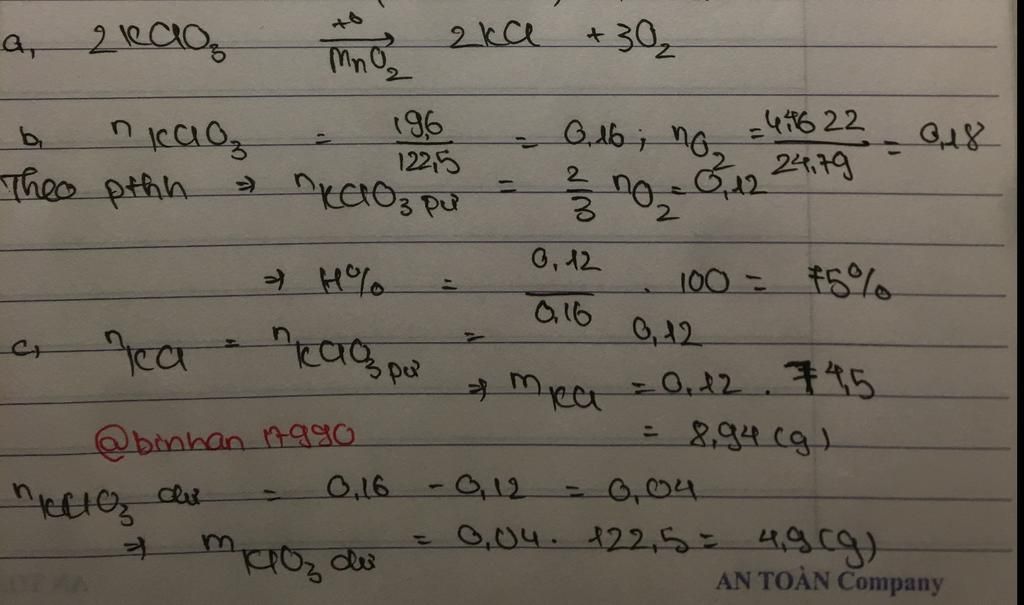 a, 2KClO3 t° MnO2 → 2KCl + 3O2
b, nKClO3 = 19,6 / 122,5 = 0,16 ; nO2 = 4,4622 / 24,79 = 0,18
Theo pthh ⇒ nKClO3 pư = 2/3 nO2 = 0,12
⇒ H% = 0,12 / 0,16 . 100 = 75%
c, nKCl = nKClO3 pư = 0,12
⇒ mKCl = 0,12 . 74,5
@binhan17990 = 8,94 (g)
nKClO3 dư = 0,16 - 0,12 = 0,04
⇒ mKClO3 dư = 0,04 . 122,5 = 4,9 (g)
AN TOÀN Company